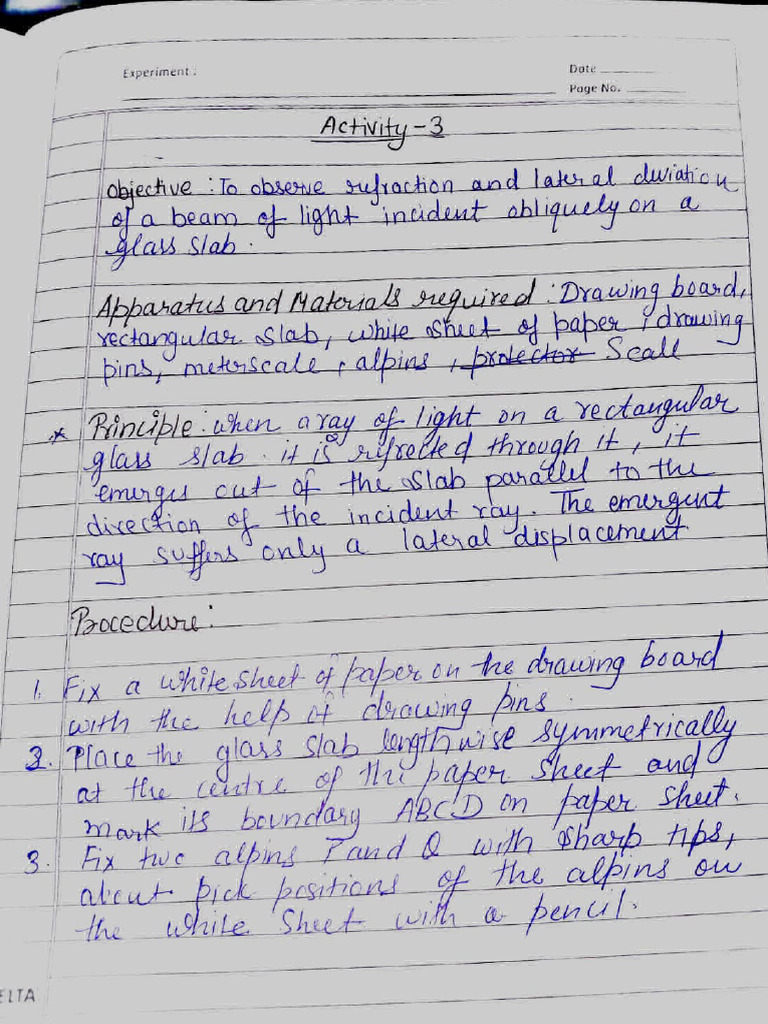 Experiment :
Date
Page No.
Activity-3
Objective : To observe refraction and lateral deviation
of a beam of light incident obliquely on a
glass slab.
Apparatus and Materials required : Drawing board,
rectangular slab, white sheet of paper, drawing
pins, meterscale, alpins, protector Scale
* Principle : when a ray of light on a rectangular
glass slab. it is refrected through it, it
emerges out of the slab parallel to the
direction of the incident ray. The emergent
ray suffers only a lateral displacement
Procedure :
1. Fix a white sheet of paper on the drawing board
with the help of drawing pins.
2. Place the glass slab lengthwise symmetrically
at the centre of the paper sheet and
mark its boundary ABCD on paper sheet.
3. Fix two alpins P and Q with sharp tips,
about pick positions of the alpins on
the white sheet with a pencil.
ELTA